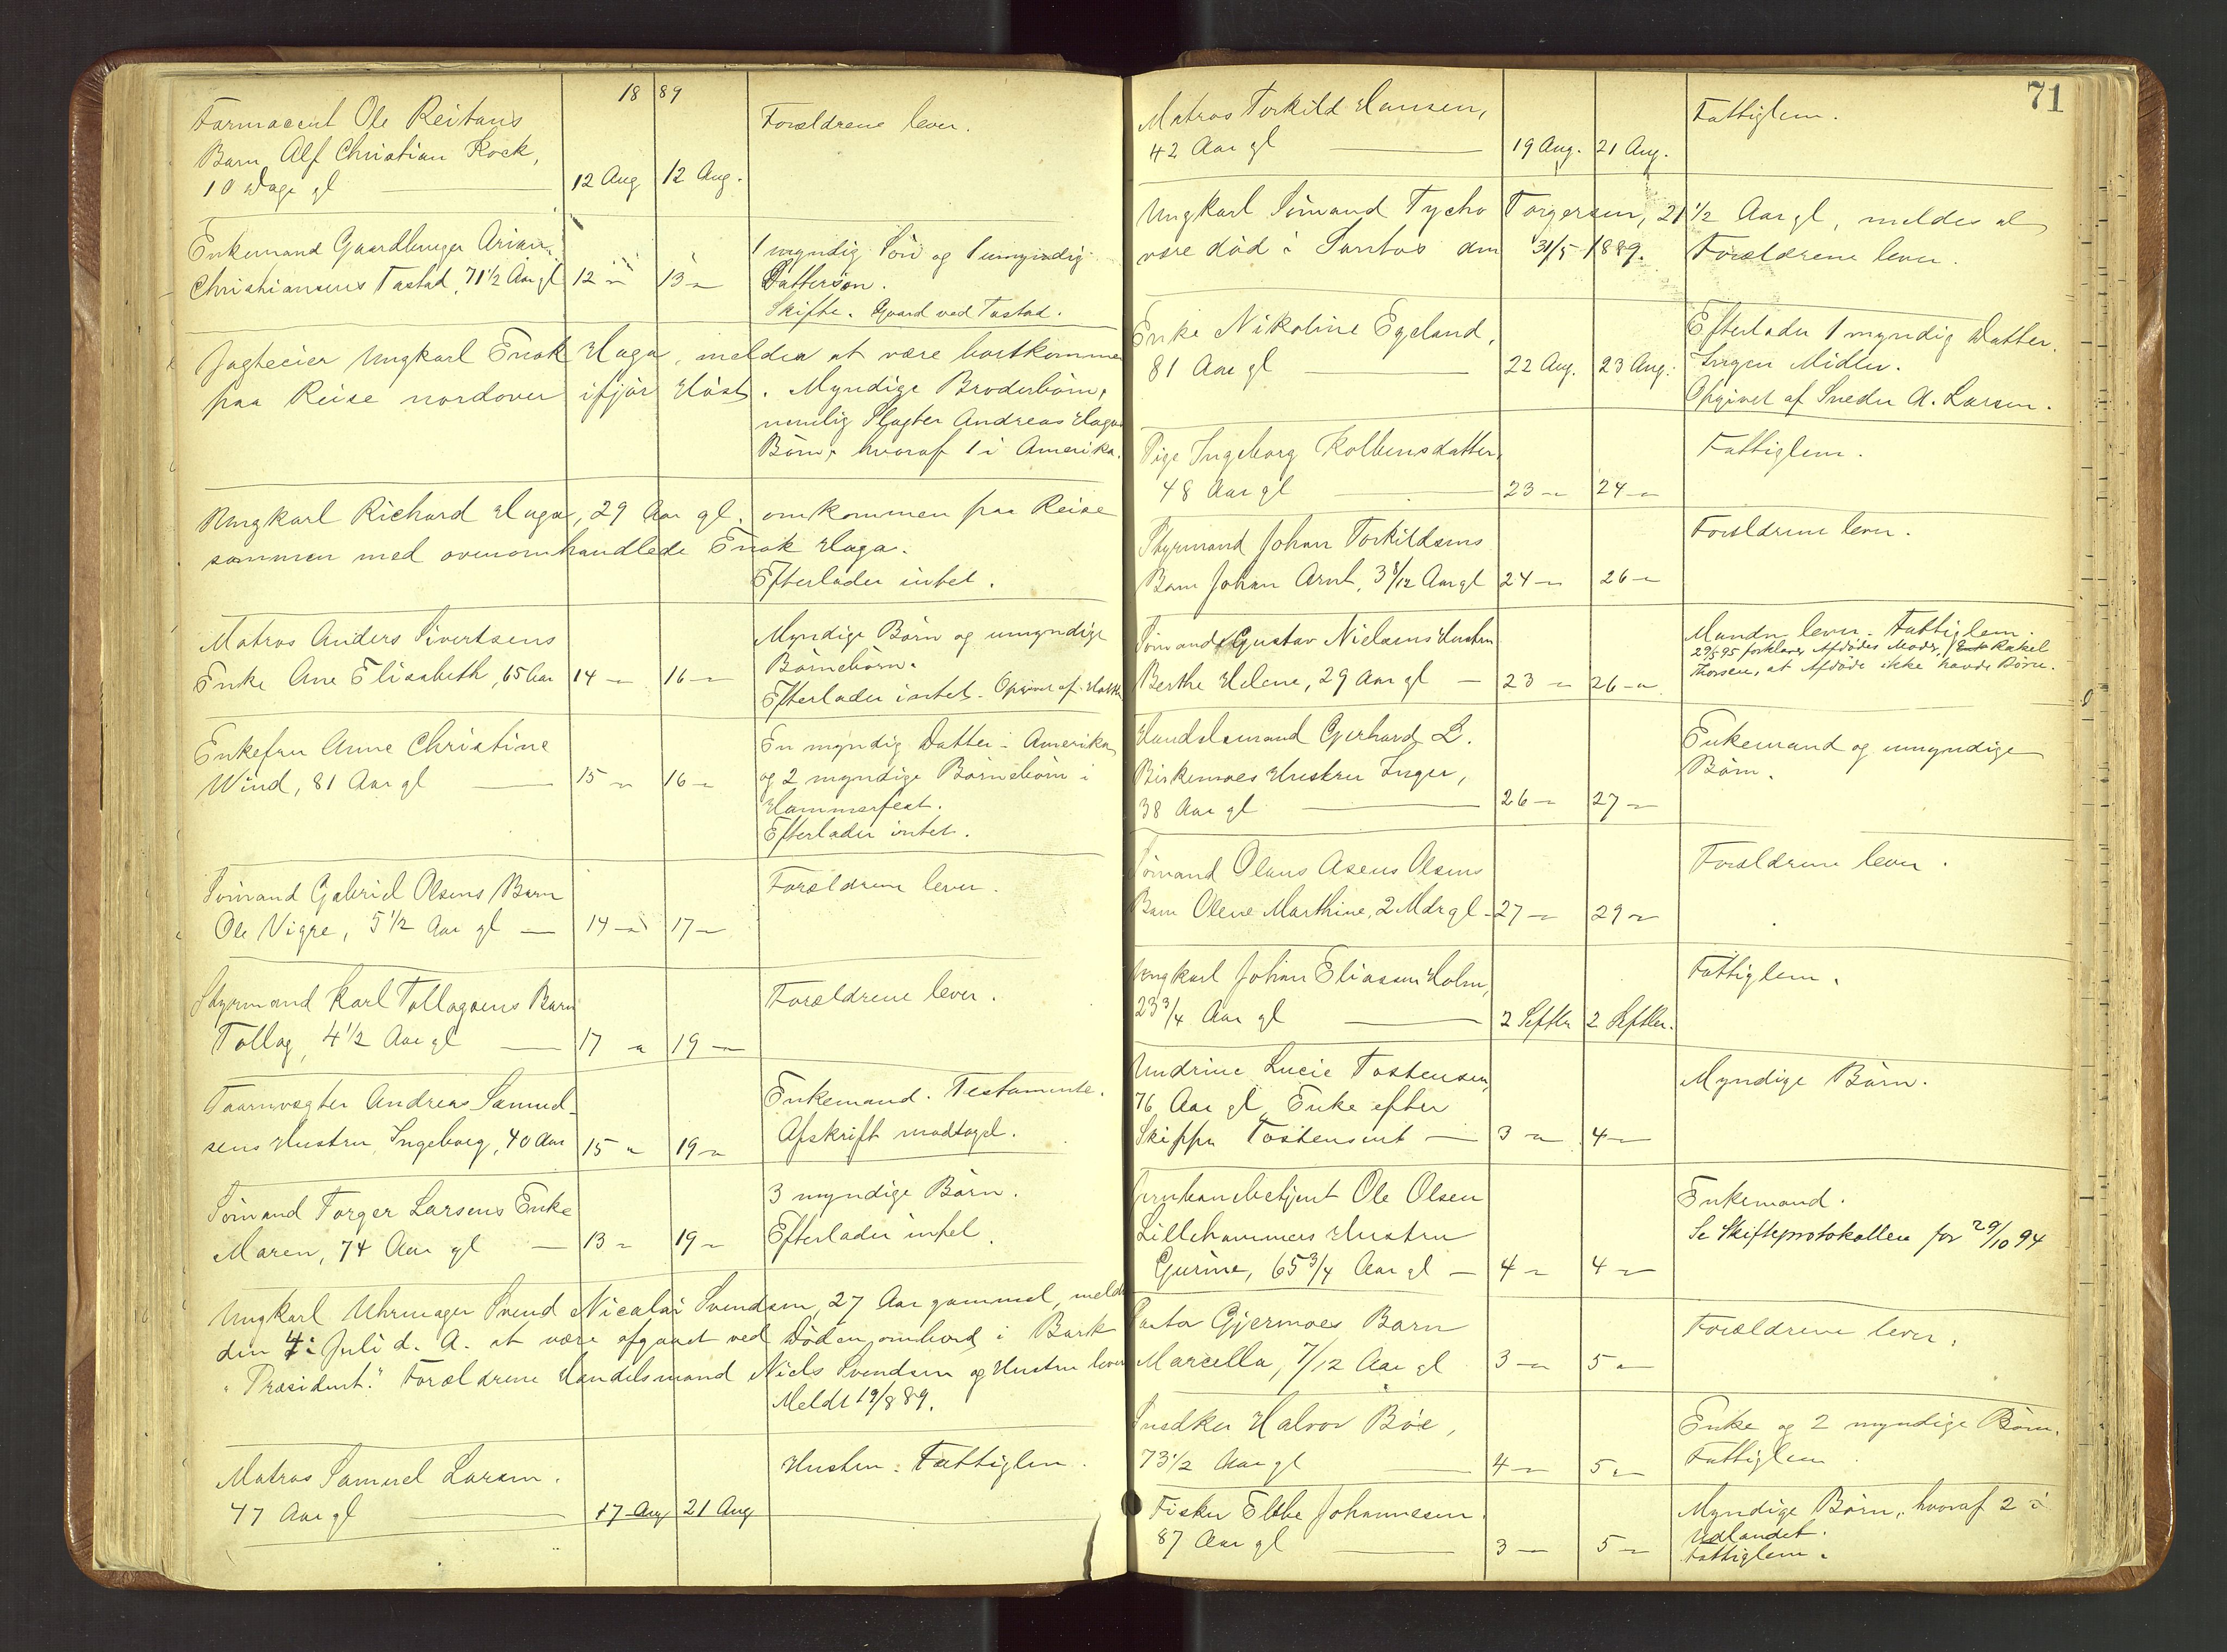 18 89
Farmaceut Ole Reitans
Barn Alf Christian Kock,
10 Dage gl
12 Aug
12 Aug.
Forældrene lever.
Enkemand Gaardbruger
Christiansens Tastad, 71½ Aar gl
12 "
13 "
1 myndig Sön og 1 umyndig
Dattersön.
Skifte. Gaard ved Tastad.
Jagteeier Ungkarl Enok Haga, meldes at være bortkommen
paa Reise nordover ifjor Höst. Myndige Broderbörn,
nemlig Slagter Andreas Hagas
Börn, hvoraf 1 i Amerika.
Ungkarl Richard Haga, 29 Aar gl. omkommen paa Reise
sammen med ovenomhandlede Enok Haga.
Efterlader intet.
Matros Anders Sivertsens
Enke Ane Elisabeth, 65 Aar
14 "
16 "
Myndige Börn og umyndige
Börnebörn.
Efterlader intet. Opgivet af
Enkefru Anne Christine
Wind, 81 Aar gl
15 "
16 "
En myndig Datter i Amerika
og 2 myndige Börnebörn i
Hammerfest.
Efterlader intet.
Sömand Gabriel Olsens Barn
Ole Vigre, 5½ Aar gl
14 "
17 "
Forældrene lever.
Styrmand Karl Tollagsens Barn
Tollag, 4½ Aar gl
17 "
19 "
Forældrene lever.
Taarnvægter Andreas Samuel-
sens Hustru Ingeborg, 40 Aar
15 "
19 "
Enkemand. Testamente.
Afskrift modtaget.
Sömand Torger Larsens Enke
Maren, 74 Aar gl
13 "
19 "
3 myndige Börn.
Efterlader intet.
Ungkarl Uhrmager Svend Nicolai Svendsen, 27 Aar gammel, meldes
den 4: Juli d. A. at være afgaaet ved Döden ombord i Bark
"Præsident." Forældrene Handelsmand Niels Svendsen og Hustru lever
Meldt 19/8 89.
Matros Samuel Larsen.
47 Aar gl
17 Aug
21 Aug
Hustru. Fattiglem.
71
Matros Torkild Hansen,
42 Aar gl
19 Aug.
21 Aug.
Fattiglem.
Ungkarl Sömand Tycho Torgersen, 21½ Aar gl, meldes at
være död i Santos den 31/5 1889. Forældrene lever.
Enke Nikoline Egeland,
81 Aar gl
22 Aug.
23 Aug.
Efterlader 1 myndig Datter.
Ingen Midler.
Opgivet af Sneder A. Larsen.
Pige Ingeborg Kolbensdatter,
48 Aar gl
23 "
24 "
Fattiglem.
Styrmand Johan Torkildsens
Barn Johan Arnt, 3 8/12 Aar gl
24 "
26 "
Forældrene lever.
Sömand Gustav Nielsens Hustru
Berthe Helene, 29 Aar gl
23 "
26 "
Manden lever. Fattiglem.
29/5 95 forklarer Afdödes Moder, Rakel
Thorsen, at Afdöde ikke havde Börn.
Handelsmand Gerhard L.
Birkemoes Hustru Inger,
38 Aar gl
26 "
27 "
Enkemand og umyndige
Börn.
Sömand Olaus Asens Olsens
Barn Olene Marthine, 2 Mdr gl
27 "
29 "
Forældrene lever.
Ungkarl Johan Eliassen Holm,
23¾ Aar gl
2 Septbr
2 Septbr.
Fattiglem.
Andrine Lucie Tostensen,
76 Aar gl, Enke efter
Skipper Tostensen
3 "
4 "
Myndige Börn.
Jernbanebetjent Ole Olsen
Lillehammers Hustru
Gurine, 65¾ Aar gl
4 "
4 "
Enkemand.
Se Skifteprotokollen for 29/10 94
Pastor Gjermoes Barn
Marcella, 7/12 Aar gl
3 "
5 "
Forældrene lever.
Snedker Halvor Böe,
73½ Aar gl
4 "
5 "
Enke og 2 myndige Börn.
Fattiglem
Fisker Ebbe Johannesen.
87 Aar gl
3 "
5 "
Myndige Börn, hvoraf 2 i
Udlandet.
Fattiglem.